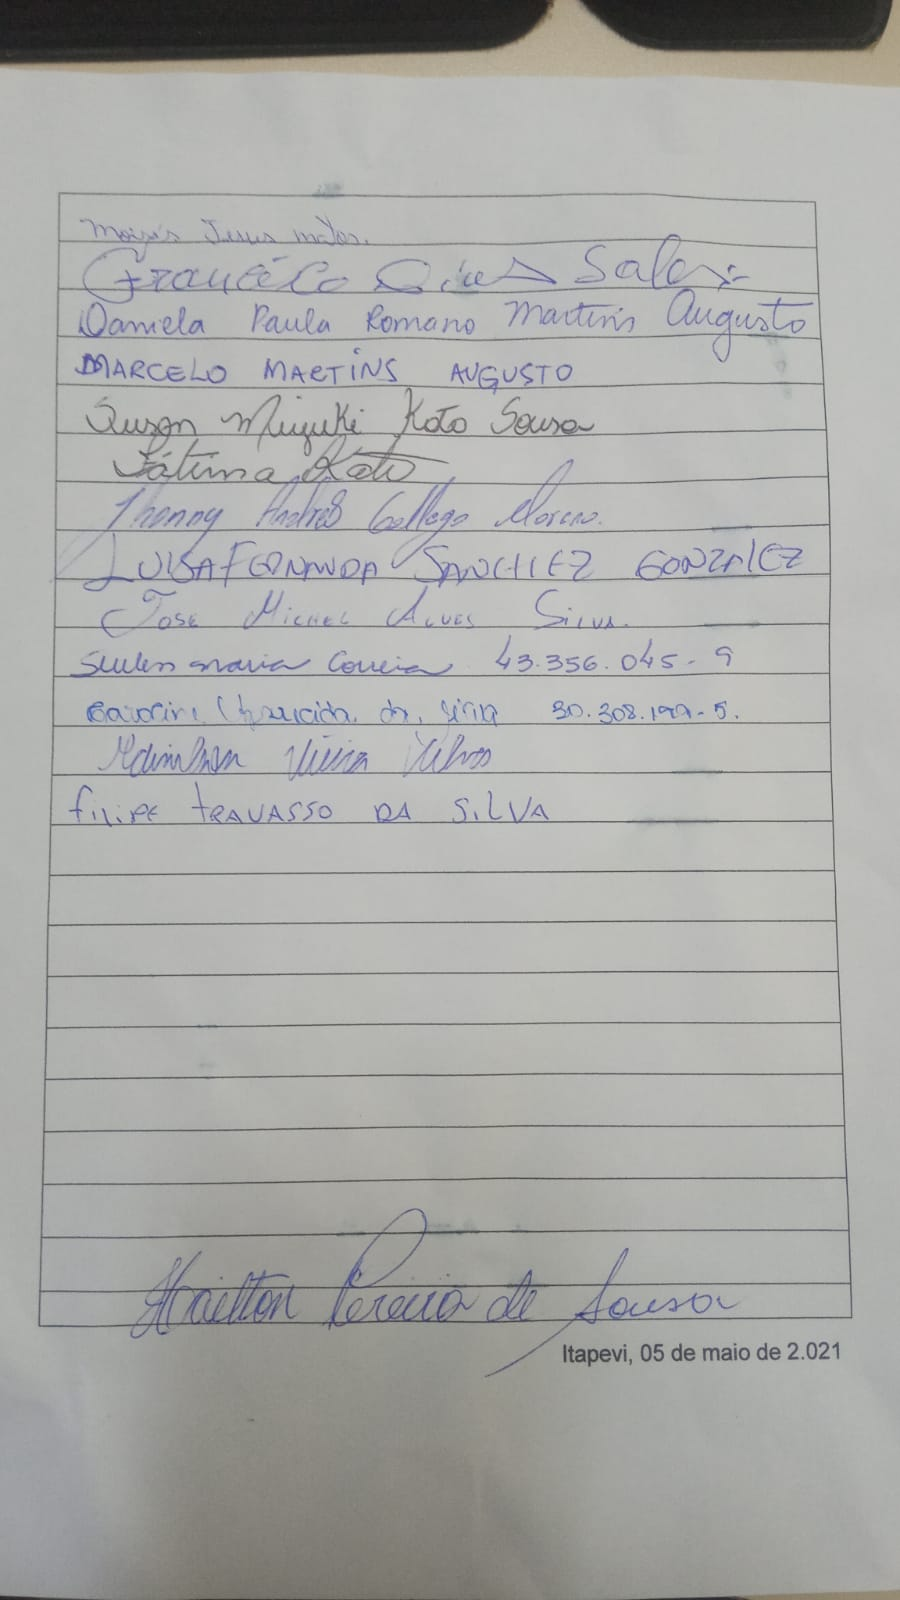 Moisés Jesus matos.
Sales
Daniela Paula Romano Martins Augusto
MARCELO MARTINS AUGUSTO
Susan Miyuki Kato Sousa
Fátima Kato
Jhonny Andrés Gallego Moreno.
LUISA FERNANDA SANCHEZ GONZALEZ
JOSE MICHEL ALVES SILVA.
maria Correia 43.356.045-9
Aparecida da 30.308.199-5.
Vieira
filipe TRAVASSO DA SILVA
Hailton Pereira de Sousa
Itapevi, 05 de maio de 2.021